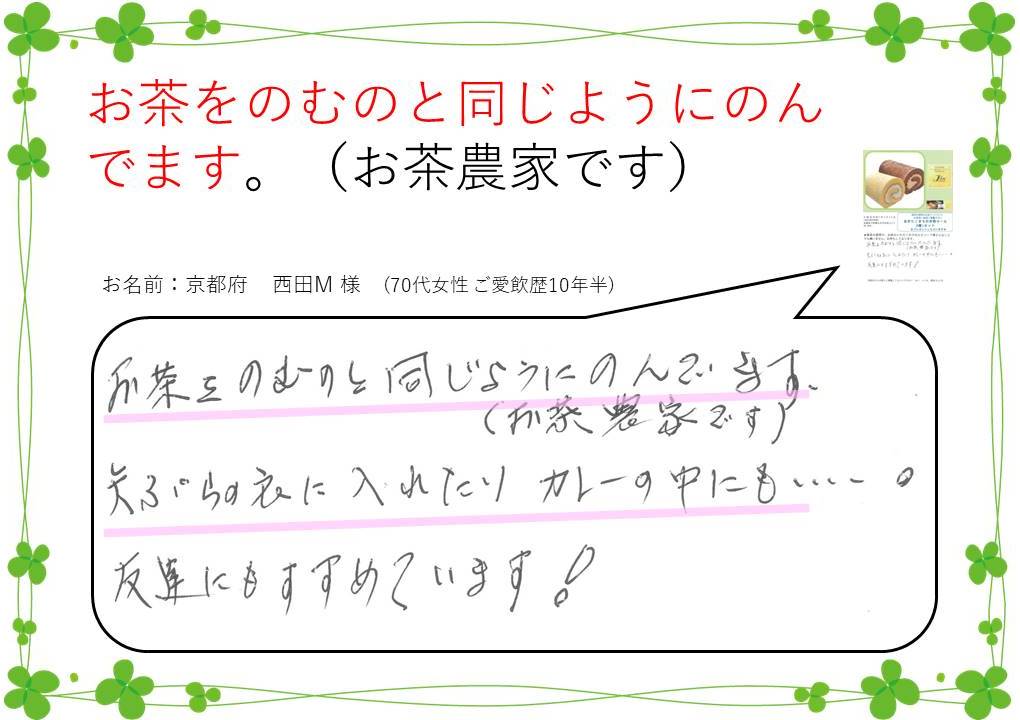 お茶をのむのと同じようにのん
でます。（お茶農家です）
お名前：京都府　西田M 様　(70代女性 ご愛飲歴10年半)
お茶をのむのと同じようにのんでいます。
(お茶農家です)
天ぷらの衣に入れたり カレーの中にも・・・・。
友達にもすすめています!